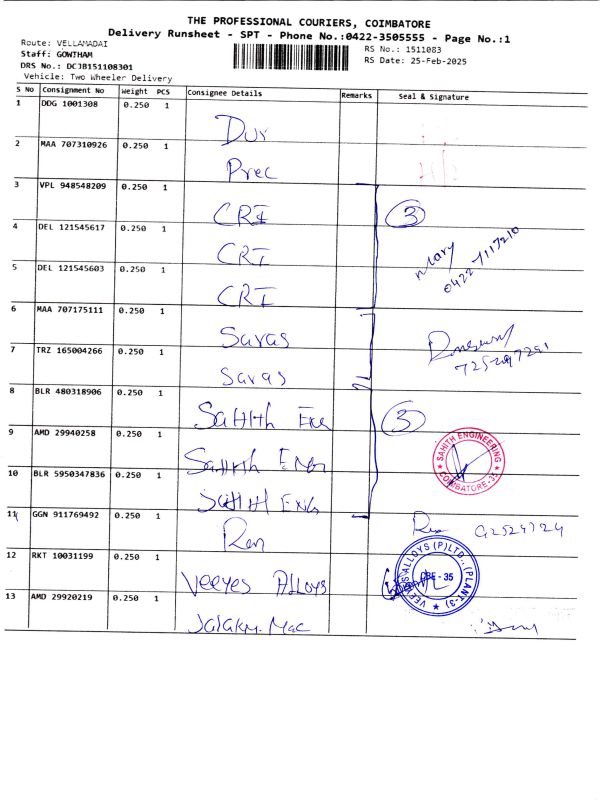 THE PROFESSIONAL COURIERS, COIMBATORE
Delivery Runsheet - SPT - Phone No.:0422-3505555 - Page No.:1
Route: VELLAMADAI
Staff: GOWTHAM
DRS No.: DCJB151108301
Vehicle: Two Wheeler Delivery
RS No.: 1511083
RS Date: 25-Feb-2025
S No Consignment No Weight PCS Consignee Details Remarks Seal & Signature
1 DDG 1001308 0.250 1 Dur
2 MAA 707310926 0.250 1 Prec
3 VPL 948548209 0.250 1 CRI 3
4 DEL 121545617 0.250 1 CRI Mary 0422-7117210
5 DEL 121545603 0.250 1 CRI
6 MAA 707175111 0.250 1 Saras
7 TRZ 165004266 0.250 1 Saras
8 BLR 480318906 0.250 1 Sahith 3
9 AMD 29940258 0.250 1 Sahith SAHITH ENGINEERING COIMBATORE-35
10 BLR 5950347836 0.250 1 Sahith
11 GGN 911769492 0.250 1 Ren
12 RKT 10031199 0.250 1 Veeyes Alloys VEEYES ALLOYS (P) LTD., (PLANT-3) CBE - 35
13 AMD 29920219 0.250 1 Mac